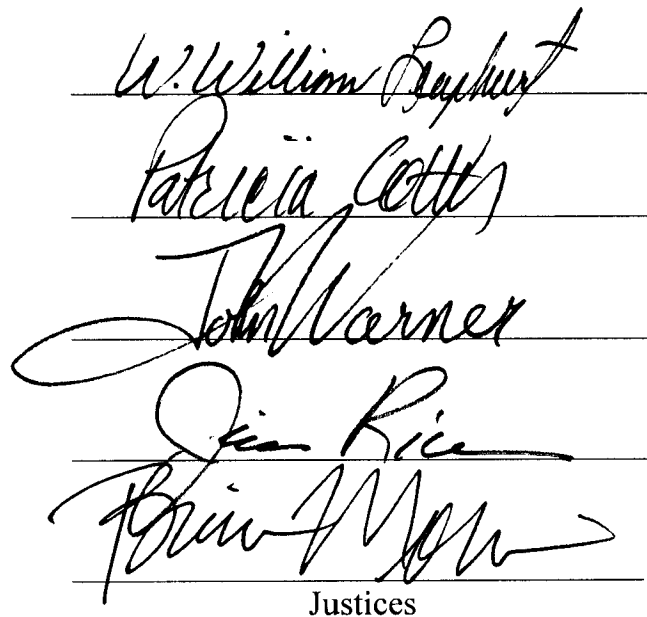 W. William Leaphart
Patricia Cotter
John Warner
Jim Rice
Brian Morris
Justices